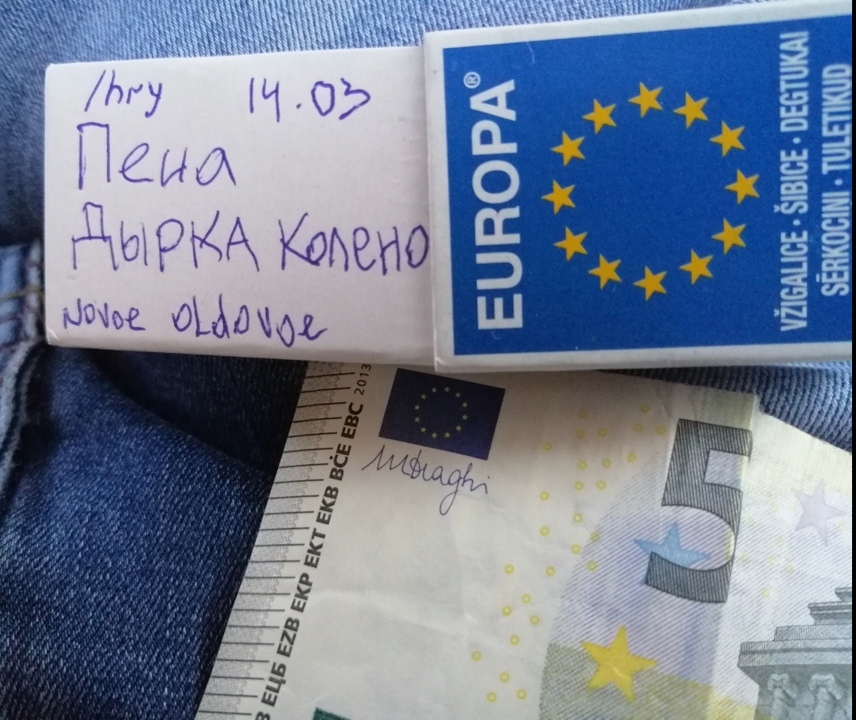 /hry 14.03
Пена
ДЫРКА Колено
NOVOE OLdOVOE
EUROPA®
VŽIGALICE · ŠIBICE · DEGTUKAI
SĒRKOCINI · TULETIKUD
ЕЦБ EZB EKP EKT EKB BĊE EBC 2013
MDraghi
5